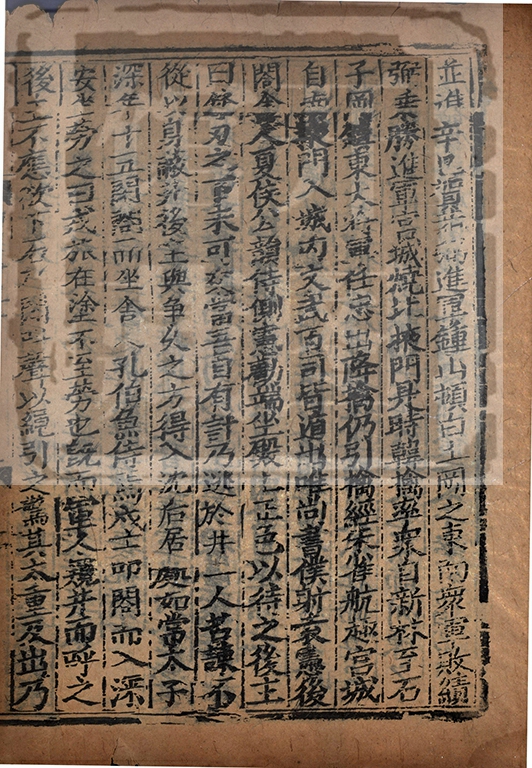 並進辛巳賀若弼進軍鍾山頓白土岡之東南衆軍敗績
弼乗勝進軍宫城燒北掖門是時韓擒率衆自新林至石
子岡鎮東大將軍任忠出降擒仍引擒經朱雀航趣宫城
自南掖門入城内文武百司皆遁出唯尚書僕射袁憲後
閤舍人夏侯公韻侍側憲勸端坐殿上正色以待之後主
曰鋒刃之下未可交當吾自有計乃逃於井二人苦諫不
從以身蔽井後主與爭久之方得入沈后居處如常太子
深年十五閉閤而坐舍人孔伯魚侍焉戍士叩閤而入深
安坐勞之曰戎旅在塗不至勞也既而軍人窺井而呼之
後主不應欲下石乃聞叫聲以繩引之驚其太重及出乃